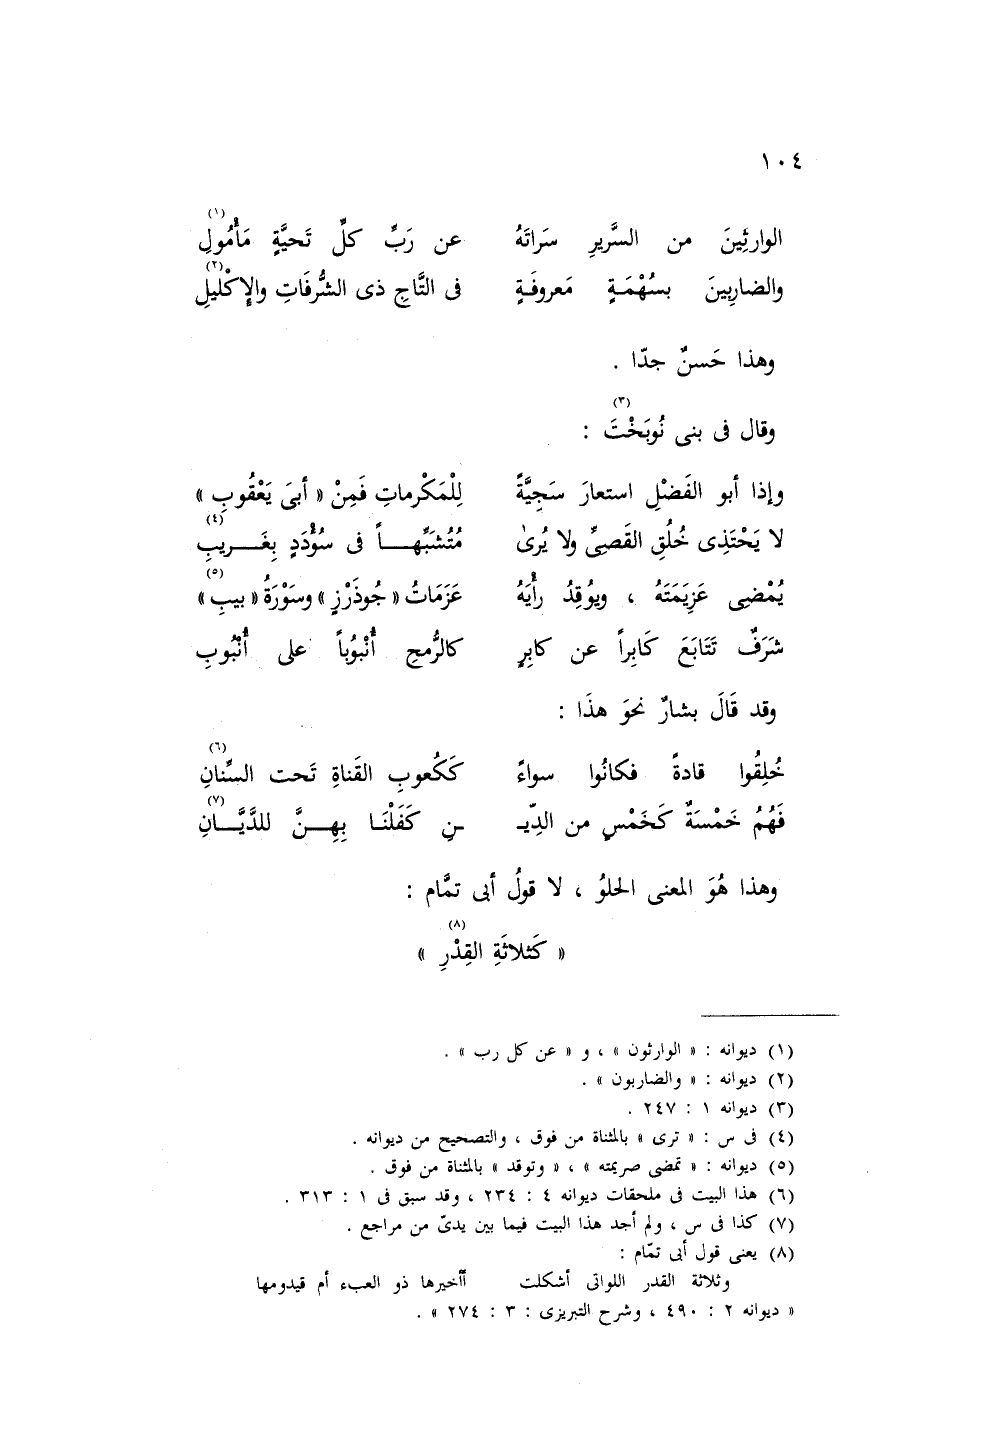 ١٠٤
الوارثِينَ من السَّريرِ سَراتَهُ عن رَبِّ كلِّ تَحيَّةٍ مَأْمُولِ (١)
والضارِبِينَ بسُهْمَةٍ مَعروفَةٍ فى التَّاجِ ذى الشُّرفَاتِ والإكْليلِ (٢)
وهذا حَسنٌ جدّا .
وقال فى بنى نُوبَخْتَ (٣) :
وإذا أبو الفَضْلِ استعارَ سَجِيَّةً لِلْمَكْرماتِ فَمِنْ « أبى يَعْقُوبِ »
لا يَحْتَذِى خُلُقِ القَصِىِّ ولا يُرىٰ مُتُشَبِّهاً فى سُؤْدَدٍ بِغَريبِ (٤)
يُمْضِى عَزِيَمَتَهُ ، ويوُقِدُ رأْيَهُ عَزَمَاتُ « جُوذَرْزٍ » وسَوْرَةُ « بيبِ » (٥)
شَرَفٌ تَتَابَعَ كَابِراً عن كابِرٍ كالرُّمحِ أُنْبوُباً على أُنْبُوبِ
وقد قَالَ بشارٌ نحوَ هذَا :
خُلِقُوا قادةً فكانُوا سواءً ككُعوبِ القَناةِ تَحت السِّنانِ (٦)
فَهُمُ خَمْسَةٌ كَخَمْسٍ من الدِّيـ ـنِ كَفَلْنَا بِهِنَّ للدَّيَّانِ (٧)
وهذا هُوَ المعنى الحلوُ ، لا قولُ أبى تمَّام :
« كَثلاثَةِ القِدْرِ (٨) »
(١) ديوانه : « الوارثون » ، و « عن كل رب » .
(٢) ديوانه : « والضاربون » .
(٣) ديوانه ١ : ٢٤٧ .
(٤) فى س : « ترى » بالمثناة من فوق ، والتصحيح من ديوانه .
(٥) ديوانه : « تمضى صريمته » ، « وتوقد » بالمثناة من فوق .
(٦) هذا البيت فى ملحقات ديوانه ٤ : ٢٣٤ ، وقد سبق فى ١ : ٣١٣ .
(٧) كذا فى س ، ولم أجد هذا البيت فيما بين يدىّ من مراجع .
(٨) يعنى قول أبى تمّام :
وثلاثة القدر اللواتى أشكلت أأخيرها ذو العبء أم قيدومها
« ديوانه ٢ : ٤٩٠ ، وشرح التبريزى : ٣ : ٢٧٤ » .